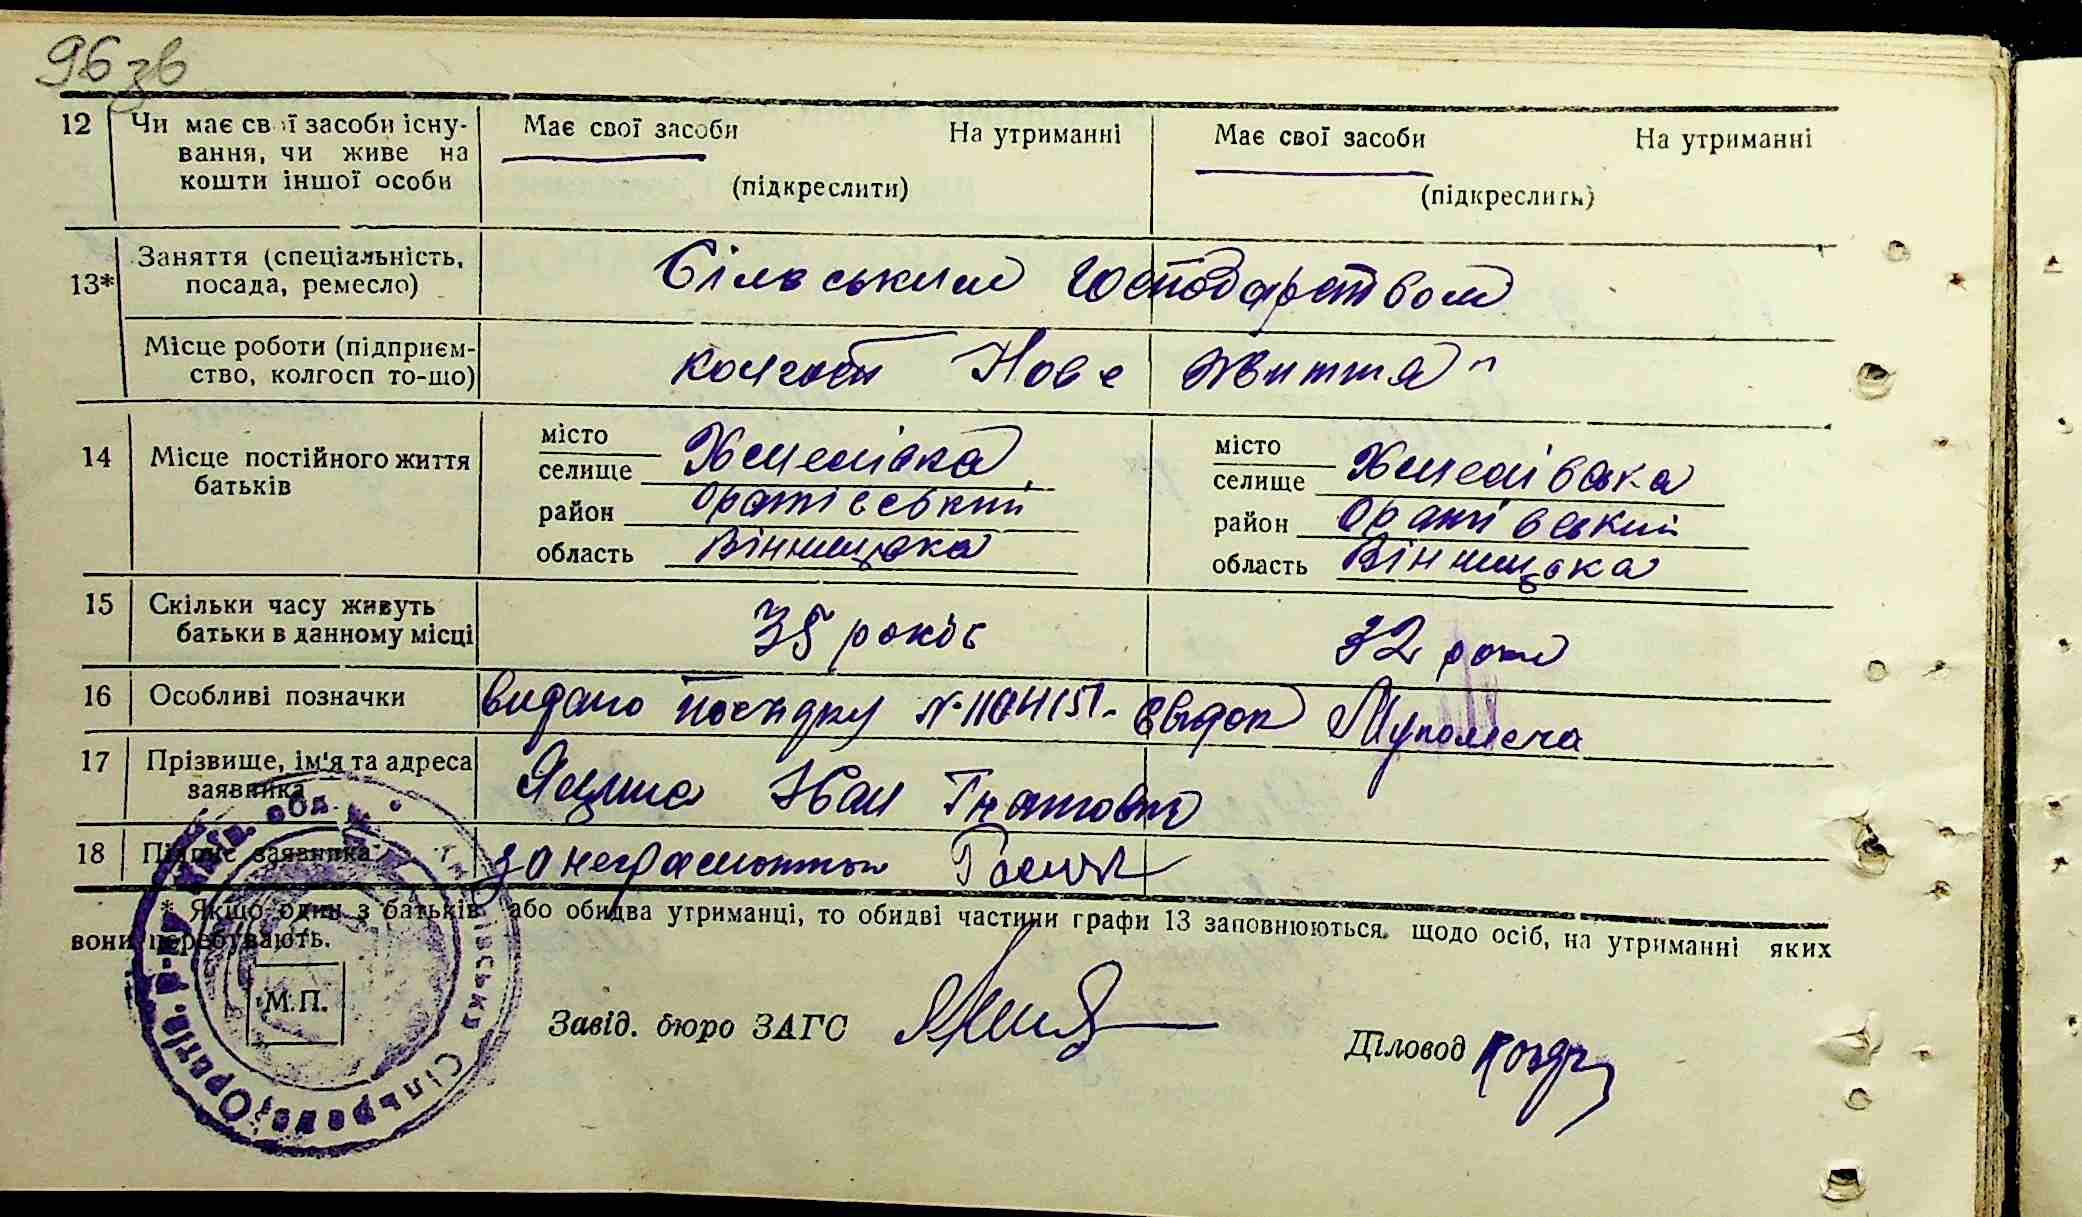 96 зв
12 Чи має свої засоби існу- Має свої засоби На утриманні Має свої засоби На утриманні
вання, чи живе на
кошти іншої особи (підкреслити) (підкреслить)
13* Заняття (спеціальність, Сільським господарством
посада, ремесло)
Місце роботи (підприєм- колгосп Нове життя"
ство, колгосп то-що)
14 Місце постійного життя місто місто
батьків селище Хмелівка селище Хмелівка
район Оратівський район Оратівський
область Вінницька область Вінницька
15 Скільки часу живуть 35 років 32 роки
батьки в данному місці
16 Особливі позначки видано посвідку №
17 Прізвище, ім'я та адреса Іван Гнатович
заявника
18 Підпис заявника за неграмотного
* Якщо один з батьків або обидва утриманці, то обидві частини графи 13 заповнюються. щодо осіб, на утриманні яких
вони перебувають.
М.П.
Завід. бюро ЗАГС
Діловод
Сільрада, Оратів. р-ну